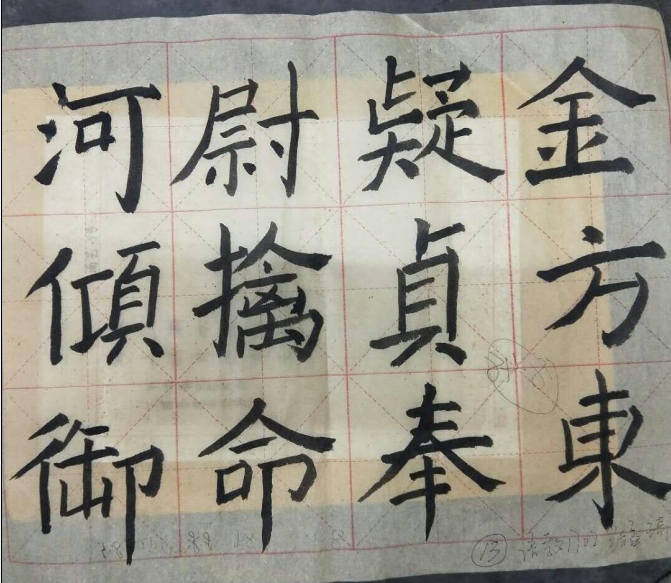 金方東
疑貞奉
尉擒命
河傾御
13